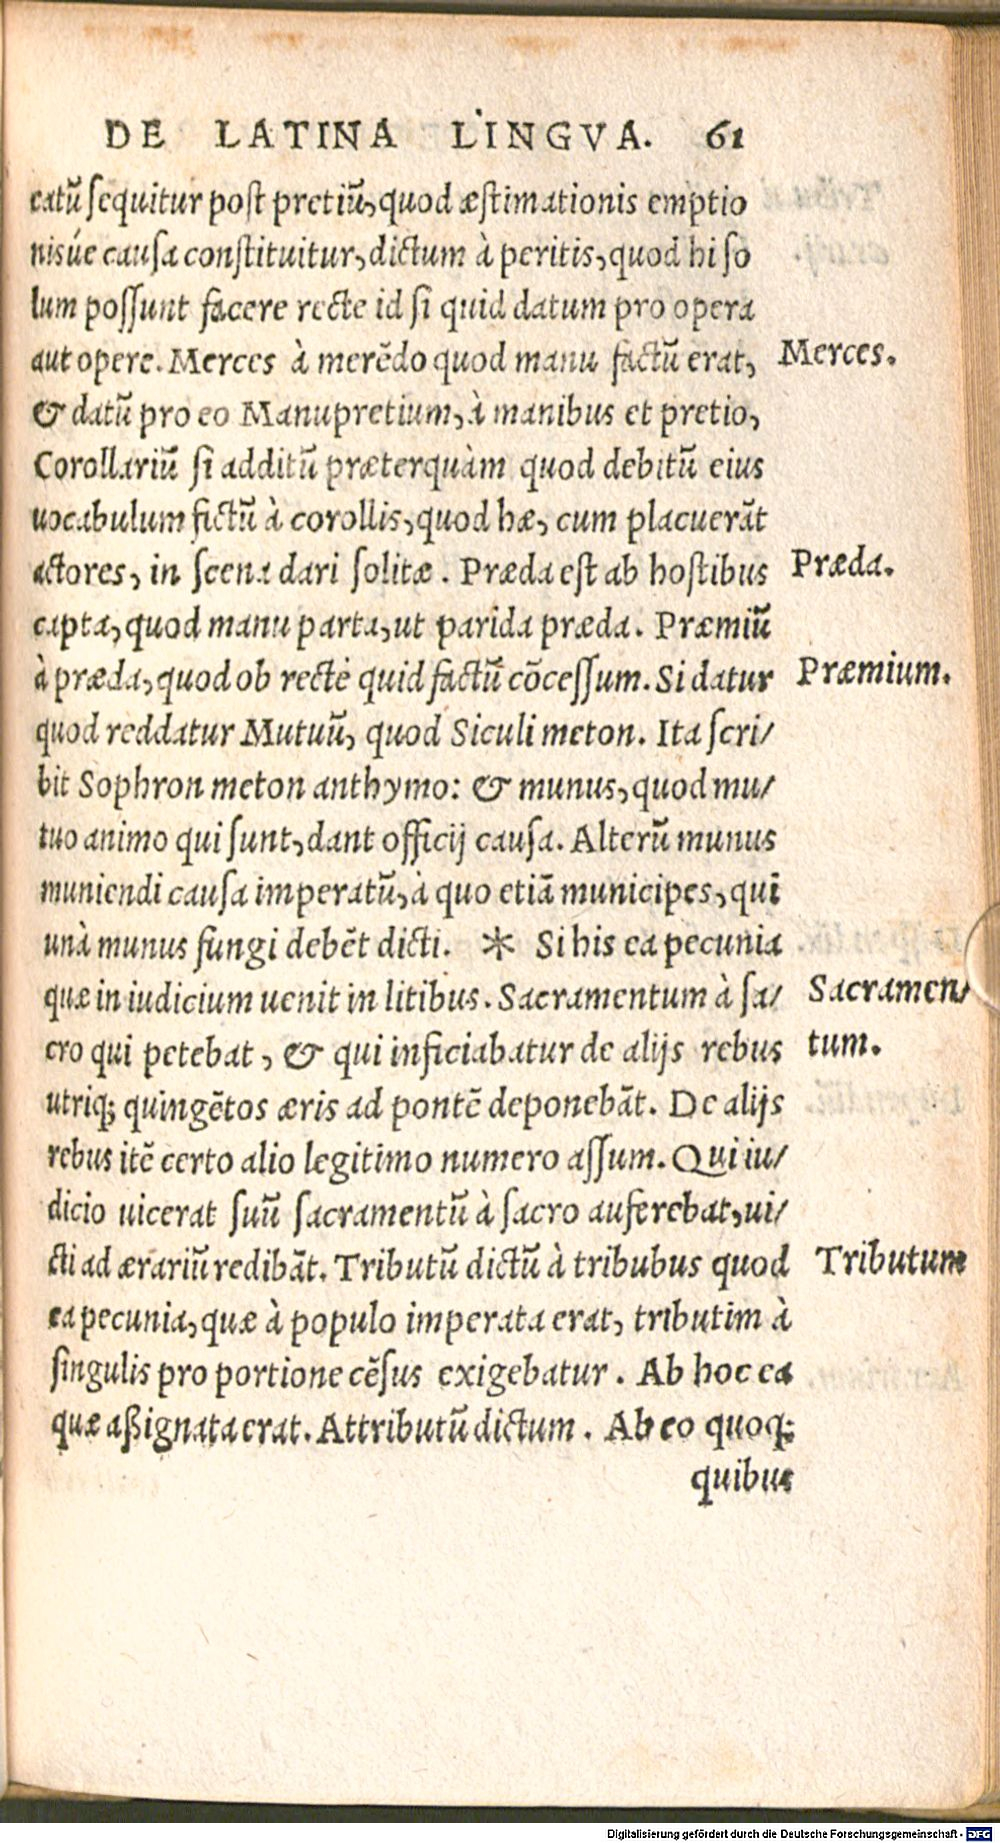 DE LATINA LINGVA. 61
catũ sequitur post pretiũ, quod æstimationis emptio
nisúe causa constituitur, dictum à peritis, quod hi so
lum possunt facere recte id si quid datum pro opera
aut opere. Merces à merẽdo quod manu factũ erat,
Merces.
& datũ pro eo Manupretium, à manibus et pretio,
Corollariũ si additũ præterquàm quod debitũ eius
uocabulum fictũ à corollis, quod hæ, cum placuerãt
actores, in scena dari solitæ. Præda est ab hostibus
Præda.
capta, quod manu parta, ut parida præda. Præmiũ
à præda, quod ob recte quid factũ cõcessum. Si datur
Præmium.
quod reddatur Mutuũ, quod Siculi meton. Ita scri/
bit Sophron meton anthymo: & munus, quod mu/
tuo animo qui sunt, dant officij causa. Alterũ munus
muniendi causa imperatũ, à quo etiã municipes, qui
unà munus fungi debẽt dicti. * Si his ea pecunia
quæ in iudicium uenit in litibus. Sacramentum à sa/
Sacramen/
cro qui petebat, & qui inficiabatur de alijs rebus
tum.
utriq; quingẽtos æris ad pontẽ deponebãt. De alijs
rebus itẽ certo alio legitimo numero assum. Qui iu/
dicio uicerat suũ sacramentũ à sacro auferebat, ui/
cti ad ærariũ redibãt. Tributũ dictũ à tribubus quod
Tributum
ea pecunia, quæ à populo imperata erat, tributim à
singulis pro portione cẽsus exigebatur. Ab hoc ea
quæ aßignata erat. Attributũ dictum. Ab eo quoq;
quibus
Digitalisierung gefördert durch die Deutsche Forschungsgemeinschaft - DFG